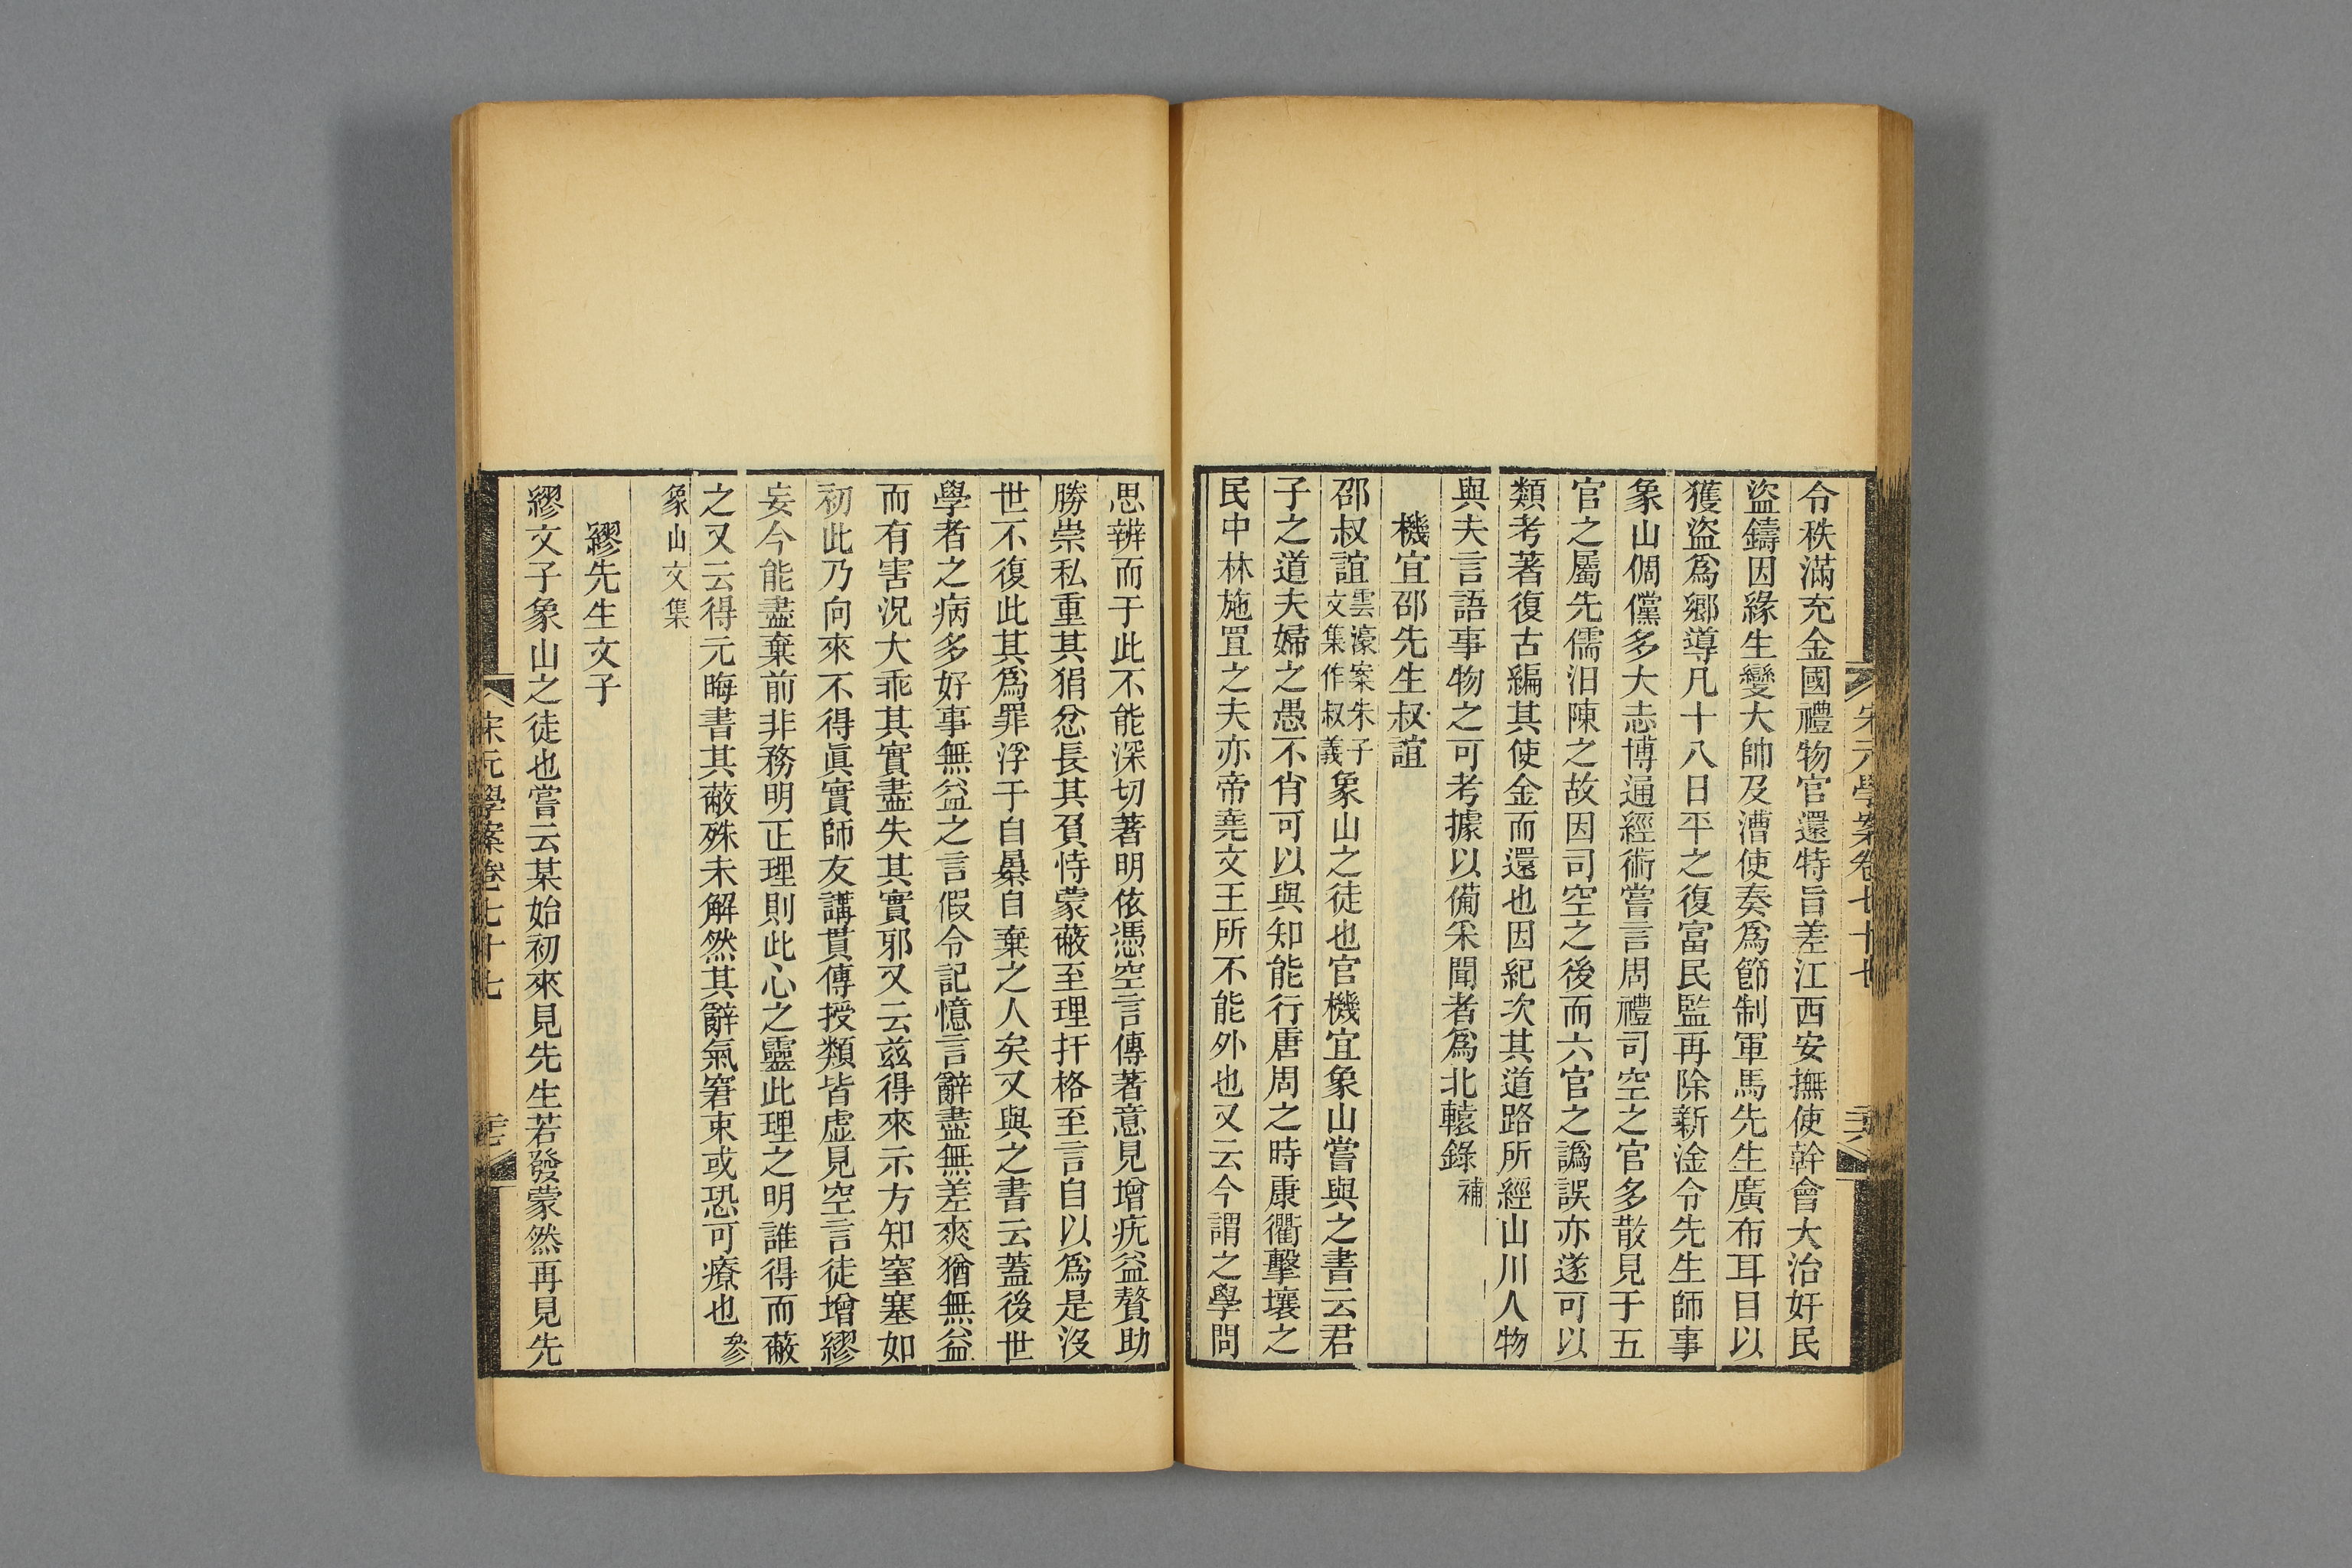 宋元學案卷七十七
令秩滿充金國禮物官還特旨差江西安撫使幹會大治奸民
盜鑄因緣生變大帥及漕使奏爲節制軍馬先生廣布耳目以
獲盜爲鄉導凡十八日平之復富民監再除新淦令先生師事
象山倜儻多大志博通經術嘗言周禮司空之官多散見于五
官之屬先儒汨陳之故因司空之後而六官之譌誤亦遂可以
類考著復古編其使金而還也因紀次其道路所經山川人物
與夫言語事物之可考據以備采聞者爲北轅錄補
機宜邵先生叔誼
邵叔誼雲濠案朱子文集作叔義象山之徒也官機宜象山嘗與之書云君
子之道夫婦之愚不肖可以與知能行唐周之時康衢擊壤之
民中林施罝之夫亦帝堯文王所不能外也又云今謂之學問
思辨而于此不能深切著明依憑空言傳著意見增疣益贅助
勝崇私重其狷忿長其負恃蒙蔽至理扞格至言自以爲是沒
世不復此其爲罪浮于自暴自棄之人矣又與之書云蓋後世
學者之病多好事無益之言假令記憶言辭盡無差爽猶無益
而有害況大乖其實盡失其實邪又云兹得來示方知窒塞如
初此乃向來不得眞實師友講貫傳授類皆虛見空言徒增繆
妄今能盡棄前非務明正理則此心之靈此理之明誰得而蔽
之又云得元晦書其蔽殊未解然其辭氣窘束或恐可療也參
象山文集
繆先生文子
繆文子象山之徒也嘗云某始初來見先生若發蒙然再見先
宋元學案卷七十七